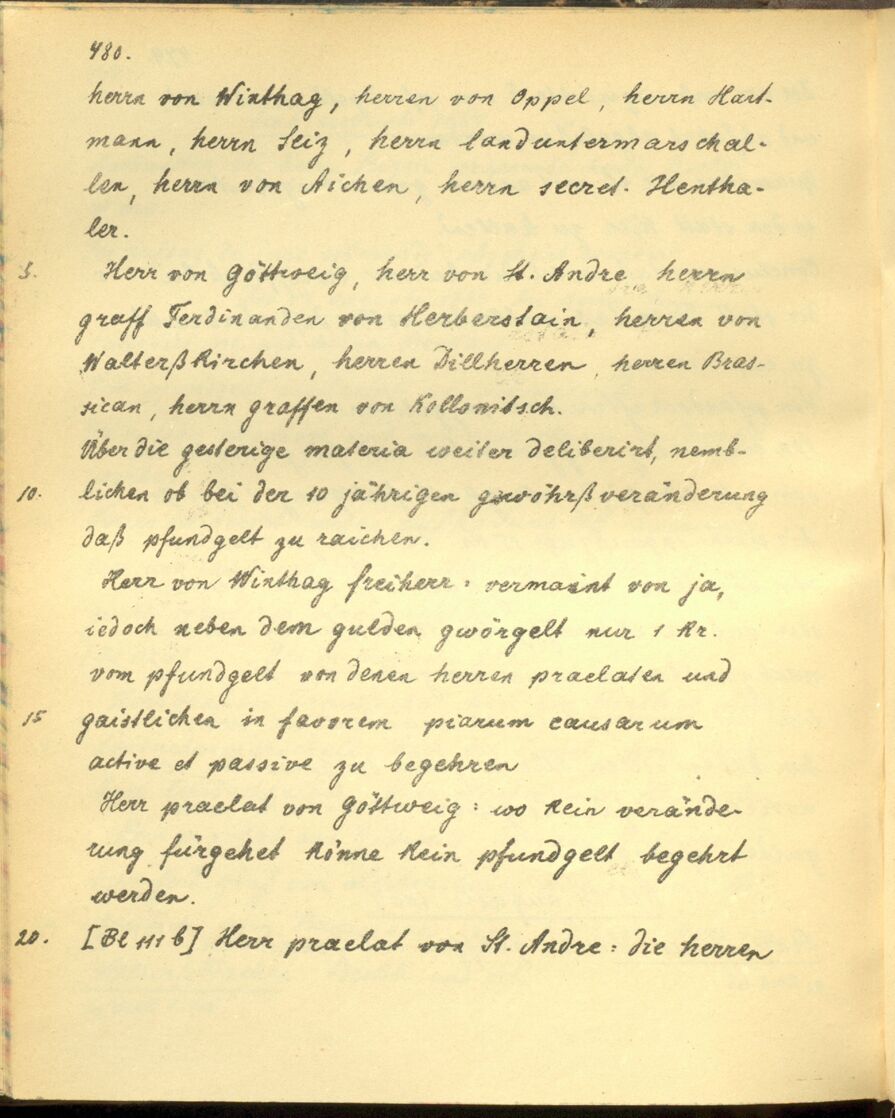 480.
herrn von Winthag, herren von Oppel, herrn Hart-
mann, herrn Seiz, herrn landuntermarschal-
len, herrn von Aichen, herrn secret. Hentha-
ler.
5. Herr von Göttweig, herr von St. Andre herrn
graff Ferdinanden von Herberstain, herren von
Walterßkirchen, herren Dillherren, herren Bras-
sican, herrn graffen von Kollonitsch.
Über die gesterige materia weiter deliberirt, nemb-
10. lichen ob bei der 10 jährigen gewöhrßveränderung
daß pfundgelt zu raichen.
Herr von Winthag freiherr: vermaint von ja,
iedoch neben dem gulden gwörgelt nur 1 kr.
vom pfundgelt von denen herren praelaten und
15 gaistlichen in favorem piarum causarum
active et passive zu begehren
Herr praelat von Göttweig: wo kein verände-
rung fürgehet könne kein pfundgelt begehrt
werden.
20. [Bl 111 b] Herr praelat von St. Andre: die herren